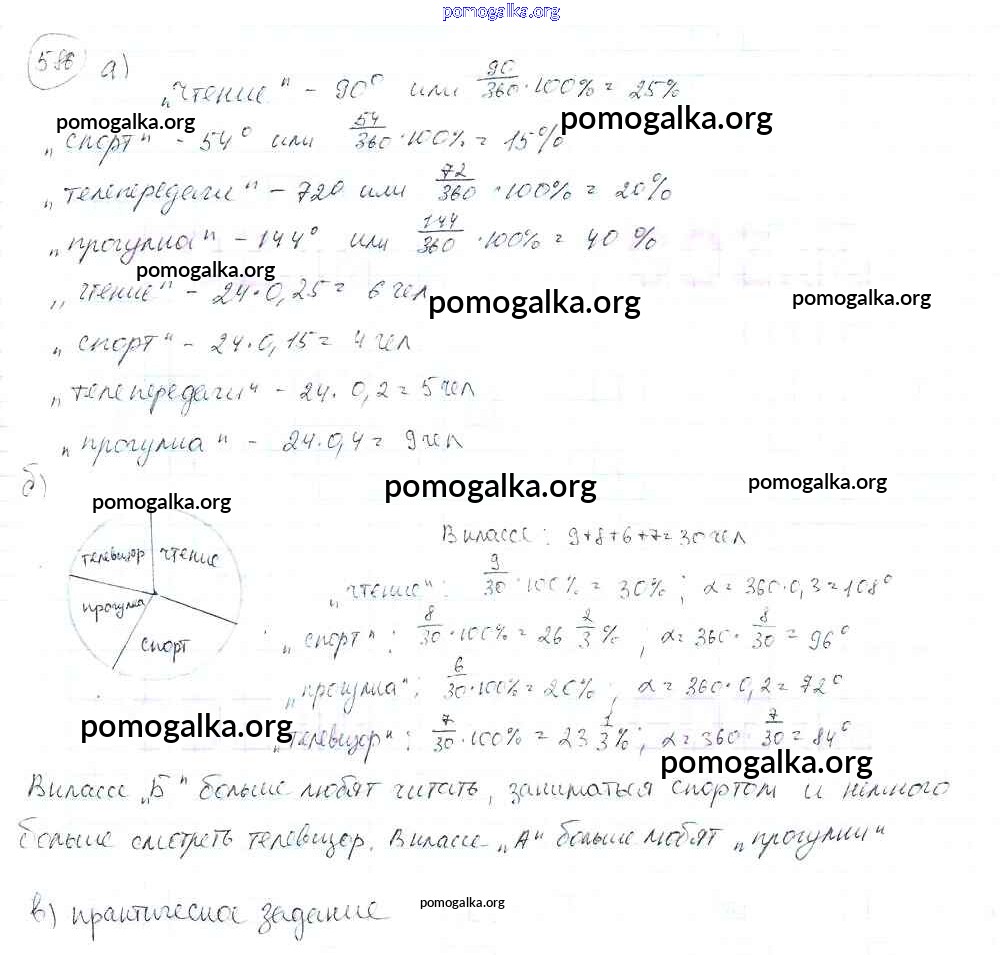 pomogalka.org
586 а) „чтение“ - 90° или 90/360 · 100% = 25%
pomogalka.org pomogalka.org
„спорт“ - 54° или 54/360 · 100% = 15%
„телепередачи“ - 720 или 72/360 · 100% = 20%
„прогулка“ - 144° или 144/360 · 100% = 40 %
pomogalka.org
„чтение“ - 24·0,25 = 6 чел
pomogalka.org pomogalka.org
„спорт“ - 24·0,15 = 4 чел
„телепередачи“ - 24·0,2 = 5 чел
„прогулка“ - 24·0,4 = 9 чел
б)
pomogalka.org pomogalka.org pomogalka.org
телевизор чтение
прогулка
спорт
В классе: 9+8+6+7=30 чел
„чтение“: 9/30 · 100% = 30% ; α = 360·0,3 = 108°
„спорт“: 8/30 · 100% = 26 2/3 % ; α = 360 · 8/30 = 96°
„прогулка“: 6/30 · 100% = 20% ; α = 360·0,2 = 72°
pomogalka.org
„телевизор“: 7/30 · 100% = 23 1/3 % ; α = 360 7/30 = 84°
pomogalka.org
В классе „Б“ больше любят читать, заниматься спортом и немного
больше смотреть телевизор. В классе „А“ больше любят „прогулки“
в) практическое задание
pomogalka.org